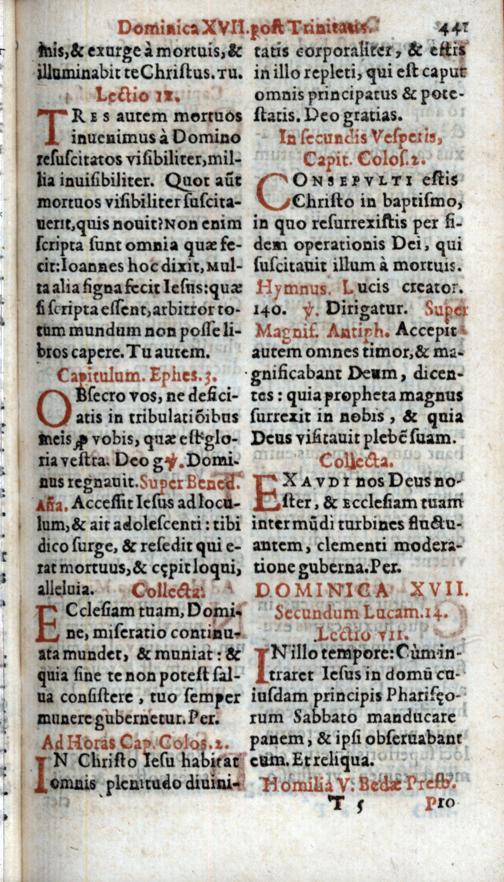 Dominica XVII. post Trinitatis. 441
tuis, & exurge à mortuis, &
illuminabit te Christus. Tu.
Lectio IX.
TRES autem mortuos
inuenimus à Domino
resuscitatos visibiliter, mil-
lia inuisibiliter. Quot aūt
mortuos visibiliter suscita-
uerit, quis nouit? Non enim
scripta sunt omnia quæ fe-
cit: Ioannes hoc dixit, Mul-
ta alia signa fecit Iesus: quæ
si scripta essent, arbitror to-
tum mundum non posse li-
bros capere. Tu autem.
Capitulum. Ephes. 3.
OBsecro vos, ne defici-
atis in tribulatiōibus
meis ꝓ vobis, quæ est glo-
ria vestra. Deo g. ℣. Domi-
nus regnauit. Super Bened.
Aña. Accessit Iesus ad locu-
lum, & ait adolescenti: tibi
dico surge, & resedit qui e-
rat mortuus, & cępit loqui,
alleluia. Collecta.
ECclesiam tuam, Domi-
ne, miseratio continu-
ata mundet, & muniat: &
quia sine te non potest sal-
ua consistere, tuo semper
munere gubernetur. Per.
Ad Horas Cap. Colos. 2.
IN Christo Iesu habitat
omnis plenitudo diuini-
tatis corporaliter, & estis
in illo repleti, qui est caput
omnis principatus & pote-
statis. Deo gratias.
In secundis Vesperis,
Capit. Colos. 2.
CONSEPVLTI estis
Christo in baptismo,
in quo resurrexistis per fi-
dem operationis Dei, qui
suscitauit illum à mortuis.
Hymnus. Lucis creator.
140. ℣. Dirigatur. Super
Magnif. Antiph. Accepit
autem omnes timor, & ma-
gnificabant Deum, dicen-
tes: quia propheta magnus
surrexit in nobis, & quia
Deus visitauit plebē suam.
Collecta.
EXAVDI nos Deus no-
ster, & Ecclesiam tuam
inter mūdi turbines fluctu-
antem, clementi modera-
tione guberna. Per.
DOMINICA XVII.
Secundum Lucam. 14.
Lectio VII.
IN illo tempore: Cùm in-
traret Iesus in domū cu-
iusdam principis Pharisęo-
rum Sabbato manducare
panem, & ipsi obseruabant
eum. Et reliqua.
Homilia V. Bedæ Presb.
T 5 Pro